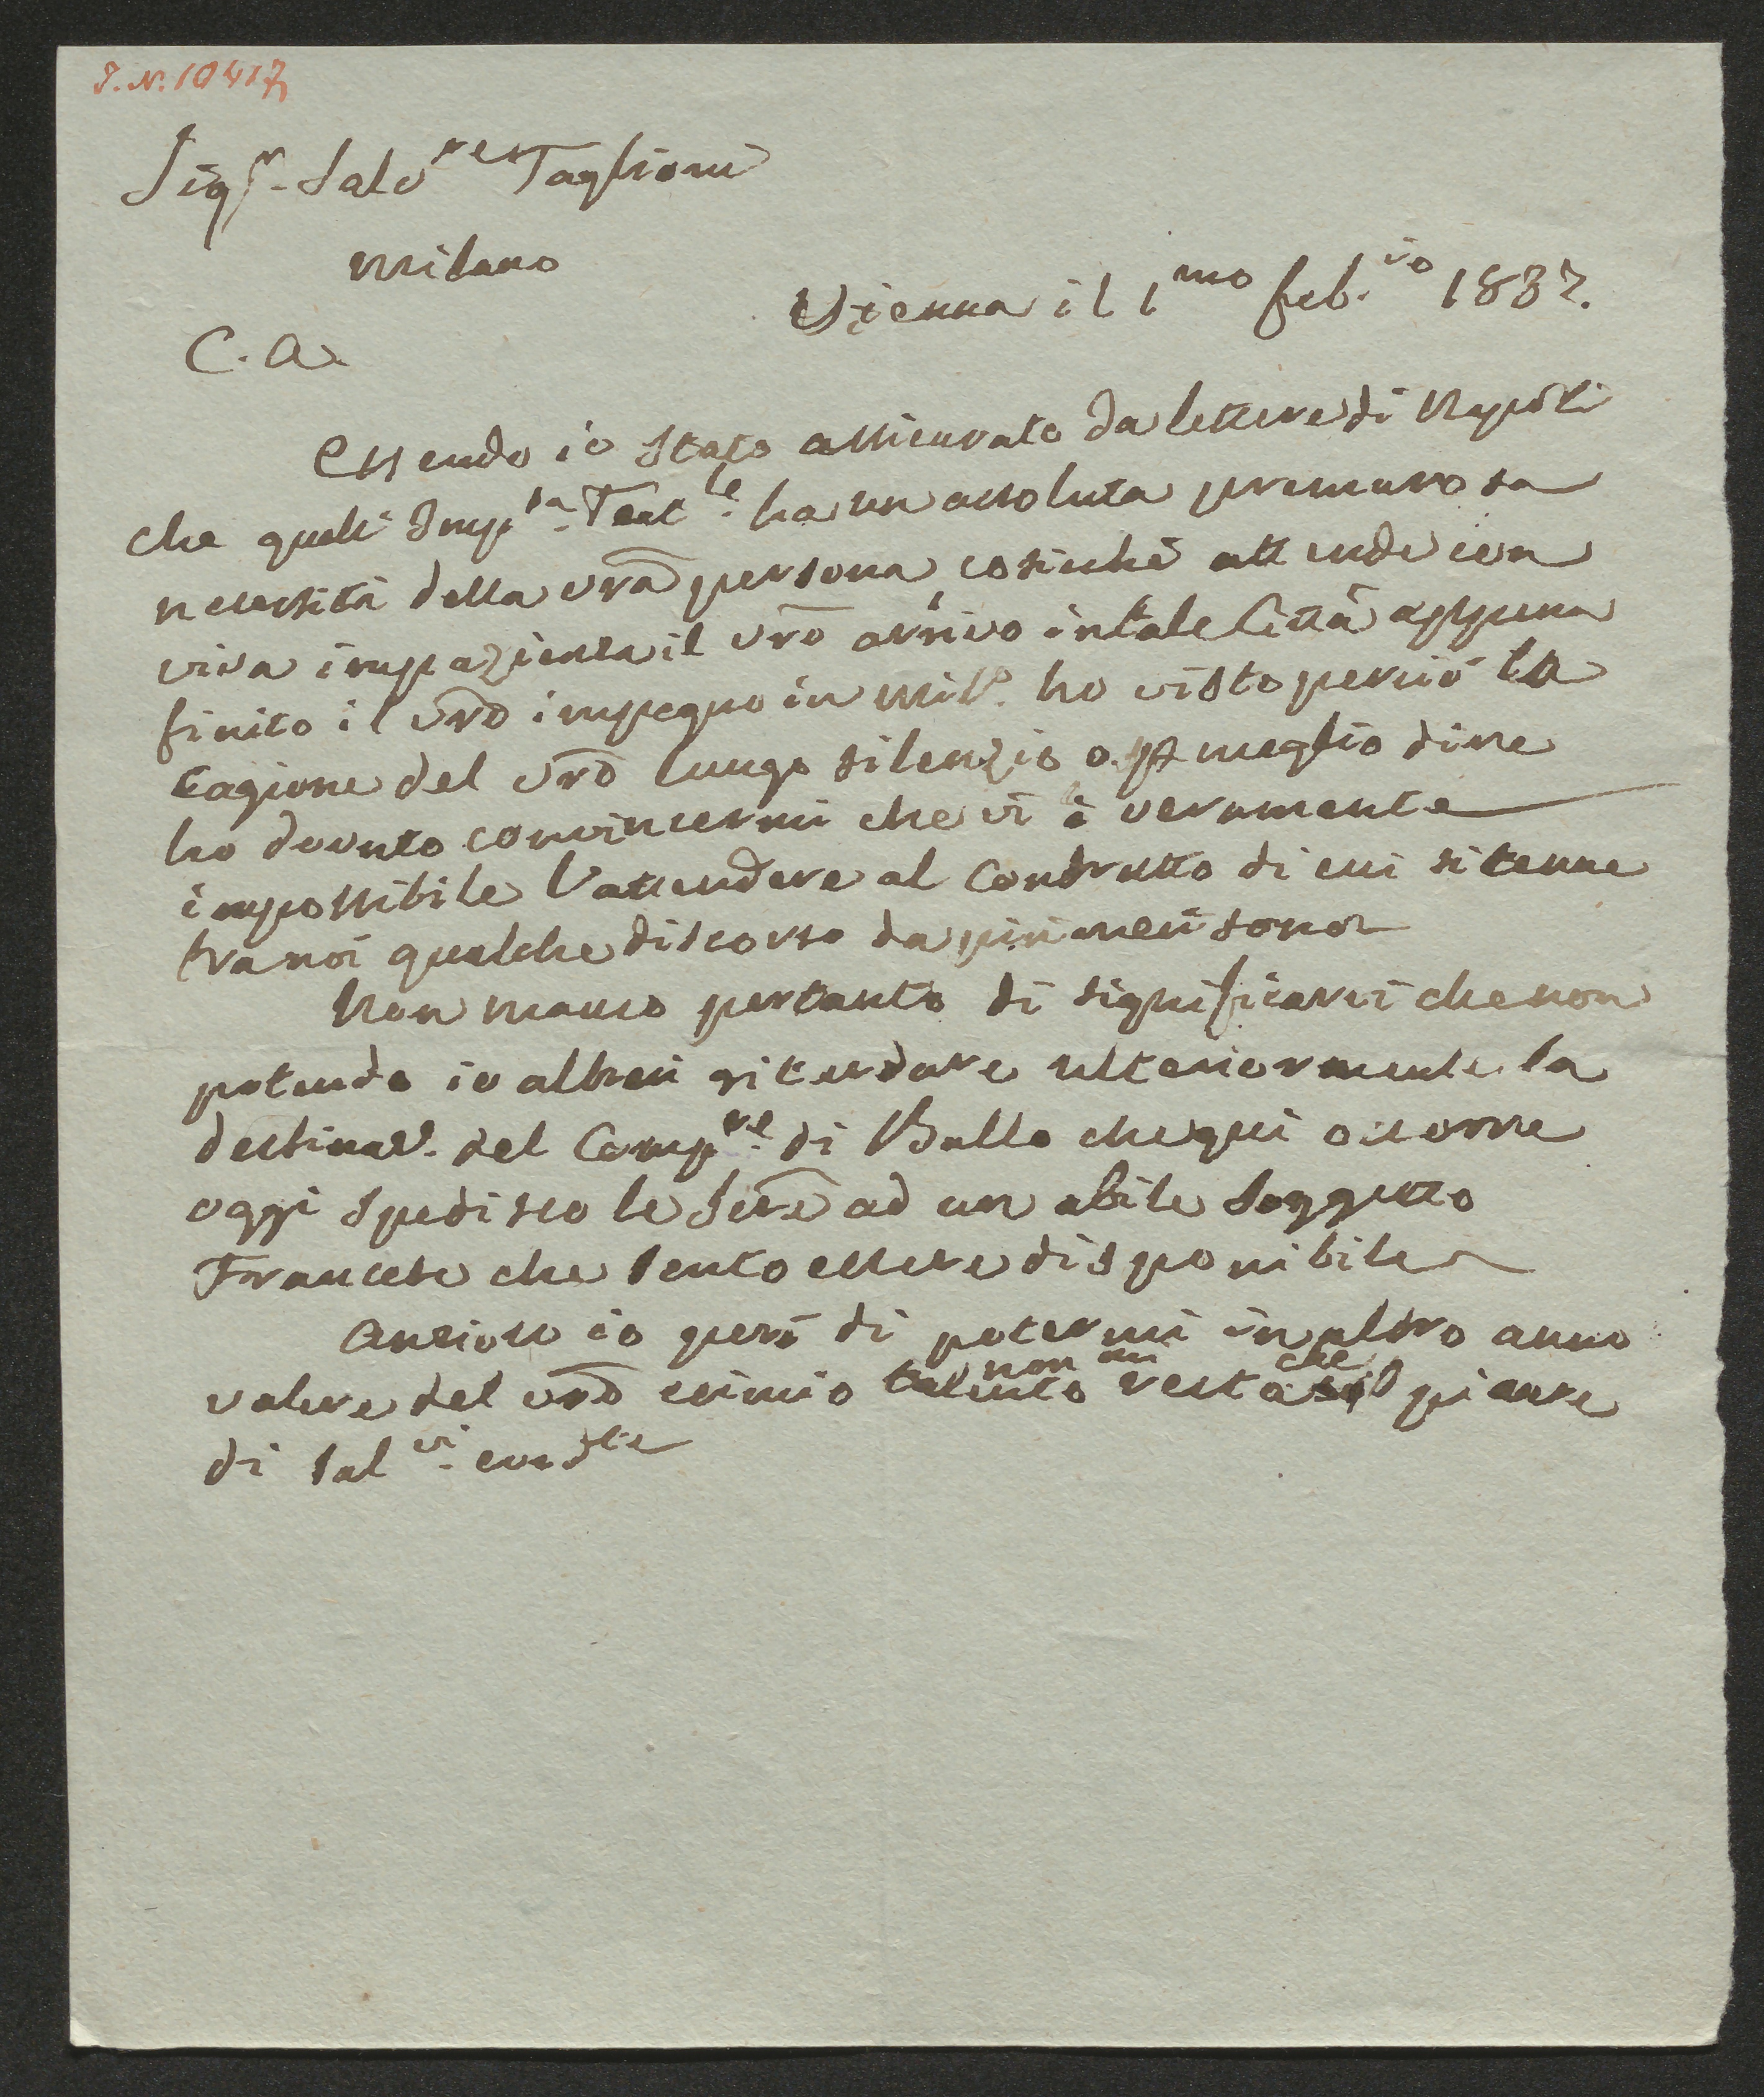 I.N. 10417
Sigr. Salvre Taglioni
Milano
Vienna il 1mo feb.io 1837.
C. A.
Essendo io stato assicurato da lettere di Napoli
che quell' Impsa. Teatle. ha un assoluta premurosa
necessità della vra persona, cosicché attende con
viva impazienza il vro arrivo in tale Città appena
finito il vro impegno in Milo. ho visto perciò la
cagione del vro lungo silenzio o meglio dire
ho dovuto convincermi che vi è veramente
impossibile l'attendere al Contratto di cui si tenne
tra noi qualche discorso da più mesi sono
Non manco pertanto di significarvi che non
potendo io altresi ritardare ulteriormente la
destinaz. del Compre. di Ballo che qui occorre
oggi spedisco le Scre ad un abile Soggetto
Francese che sento essere disponibile
Ansioso io però di potermi in altro anno
valere del vro esimio talento non mi resta che il piacere
di salvi. con dte